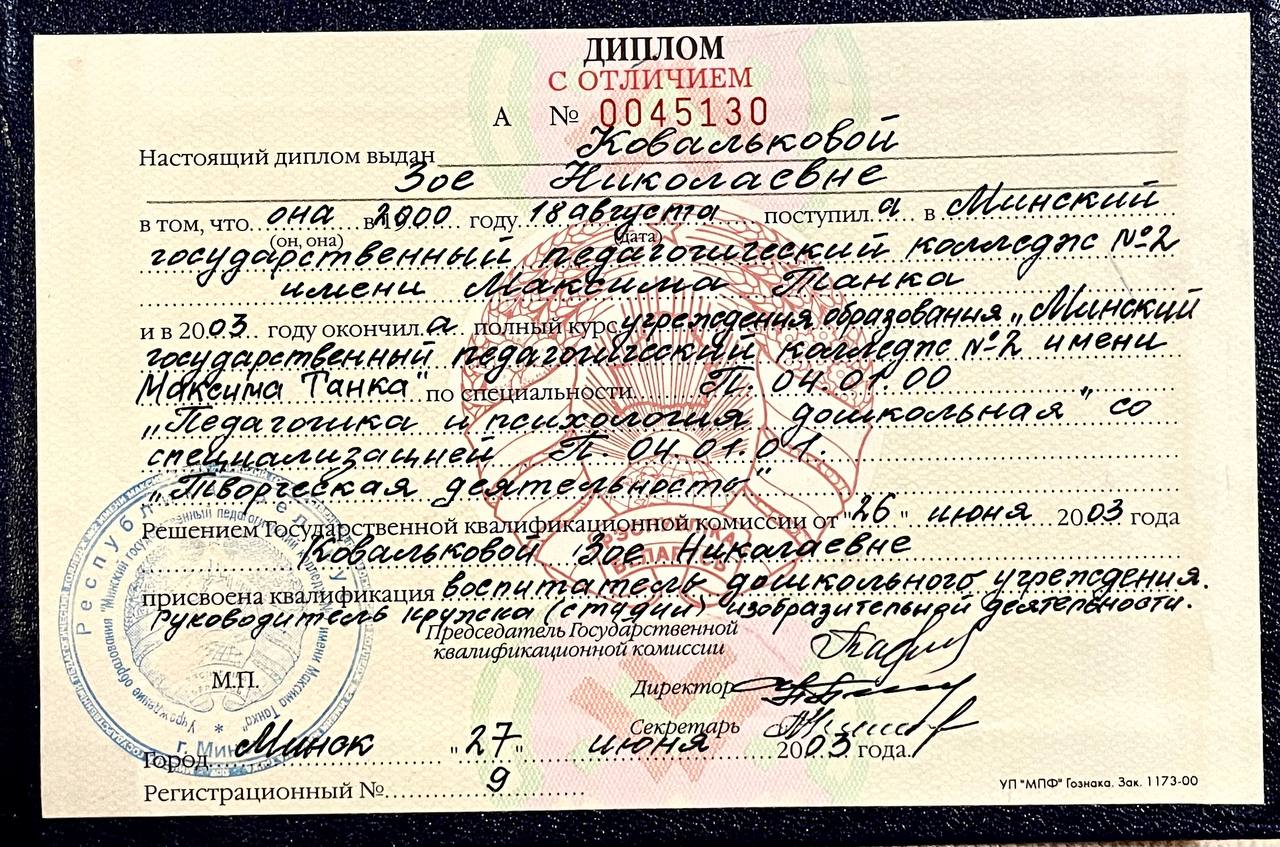 ДИПЛОМ
С ОТЛИЧИЕМ
А № 0045130
Настоящий диплом выдан Ковальковой
Зое Николаевне
в том, что она в 2000 году 18 августа поступила в Минский
(он, она) (дата)
государственный педагогический колледж №2
имени Максима Танка
и в 2003 году окончила полный курс учреждения образования „Минский
государственный педагогический колледж №2 имени
Максима Танка" по специальности П. 04.01.00
„Педагогика и психология дошкольная" со
специализацией П 04.01.01.
„Творческая деятельность"
Решением Государственной квалификационной комиссии от "26" июня 2003 года
Ковальковой Зое Николаевне
присвоена квалификация воспитатель дошкольного учреждения.
Руководитель кружка (студии) изобразительной деятельности.
Председатель Государственной
квалификационной комиссии
Директор
М.П.
Секретарь
Город Минск "27" июня 2003 года.
Регистрационный № 9
УП "МПФ" Гознака. Зак. 1173-00
РЭСПУБЛІКА
БЕЛАРУСЬ
Учреждение образования "Минский государственный педагогический колледж имени Максима Танка"
г. Минск